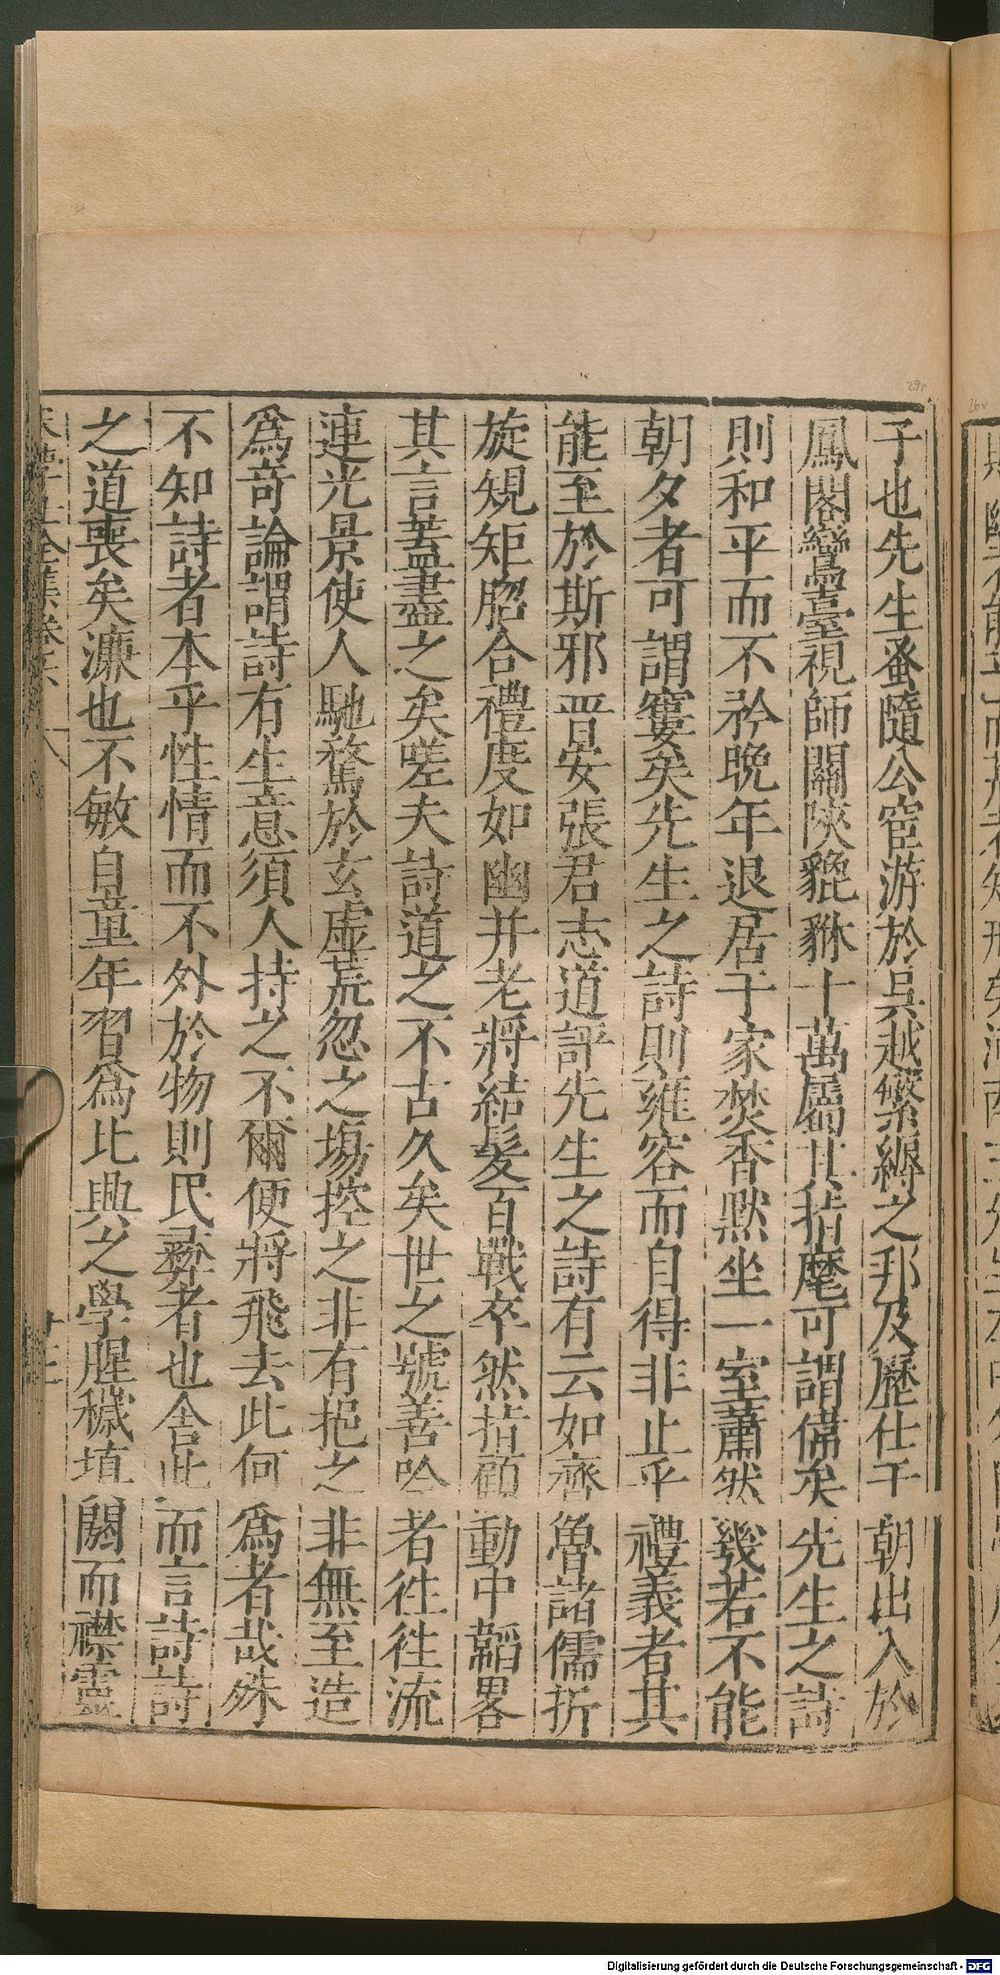 子也先生蚤隨公宦游於吳越繁縟之邦及歷仕于朝出入於
鳳閣鸞臺視師關陝貔貅十萬屬其指麾可謂備矣先生之詩
則和平而不矜晚年退居于家焚香默坐一室蕭然幾若不能
朝夕者可謂窶矣先生之詩則雍容而自得非止乎禮義者其
能至於斯邪晋安張君志道評先生之詩有云如齊魯諸儒折
旋規矩脗合禮度如幽并老將結髮百戰卒然指顧動中韜畧
其言葢盡之矣嗟夫詩道之不古久矣世之號善吟者徃徃流
連光景使人馳騖於玄虛荒忽之塲控之非有挹之非無至造
爲竒論謂詩有生意須人持之不爾便將飛去此何爲者哉殊
不知詩者本乎性情而不外於物則民彛者也舍此而言詩詩
之道喪矣濂也不敏自童年習爲比興之學腥穢填闕而襟靈
廿三
29r
26v
Digitalisierung gefördert durch die Deutsche Forschungsgemeinschaft - DFG